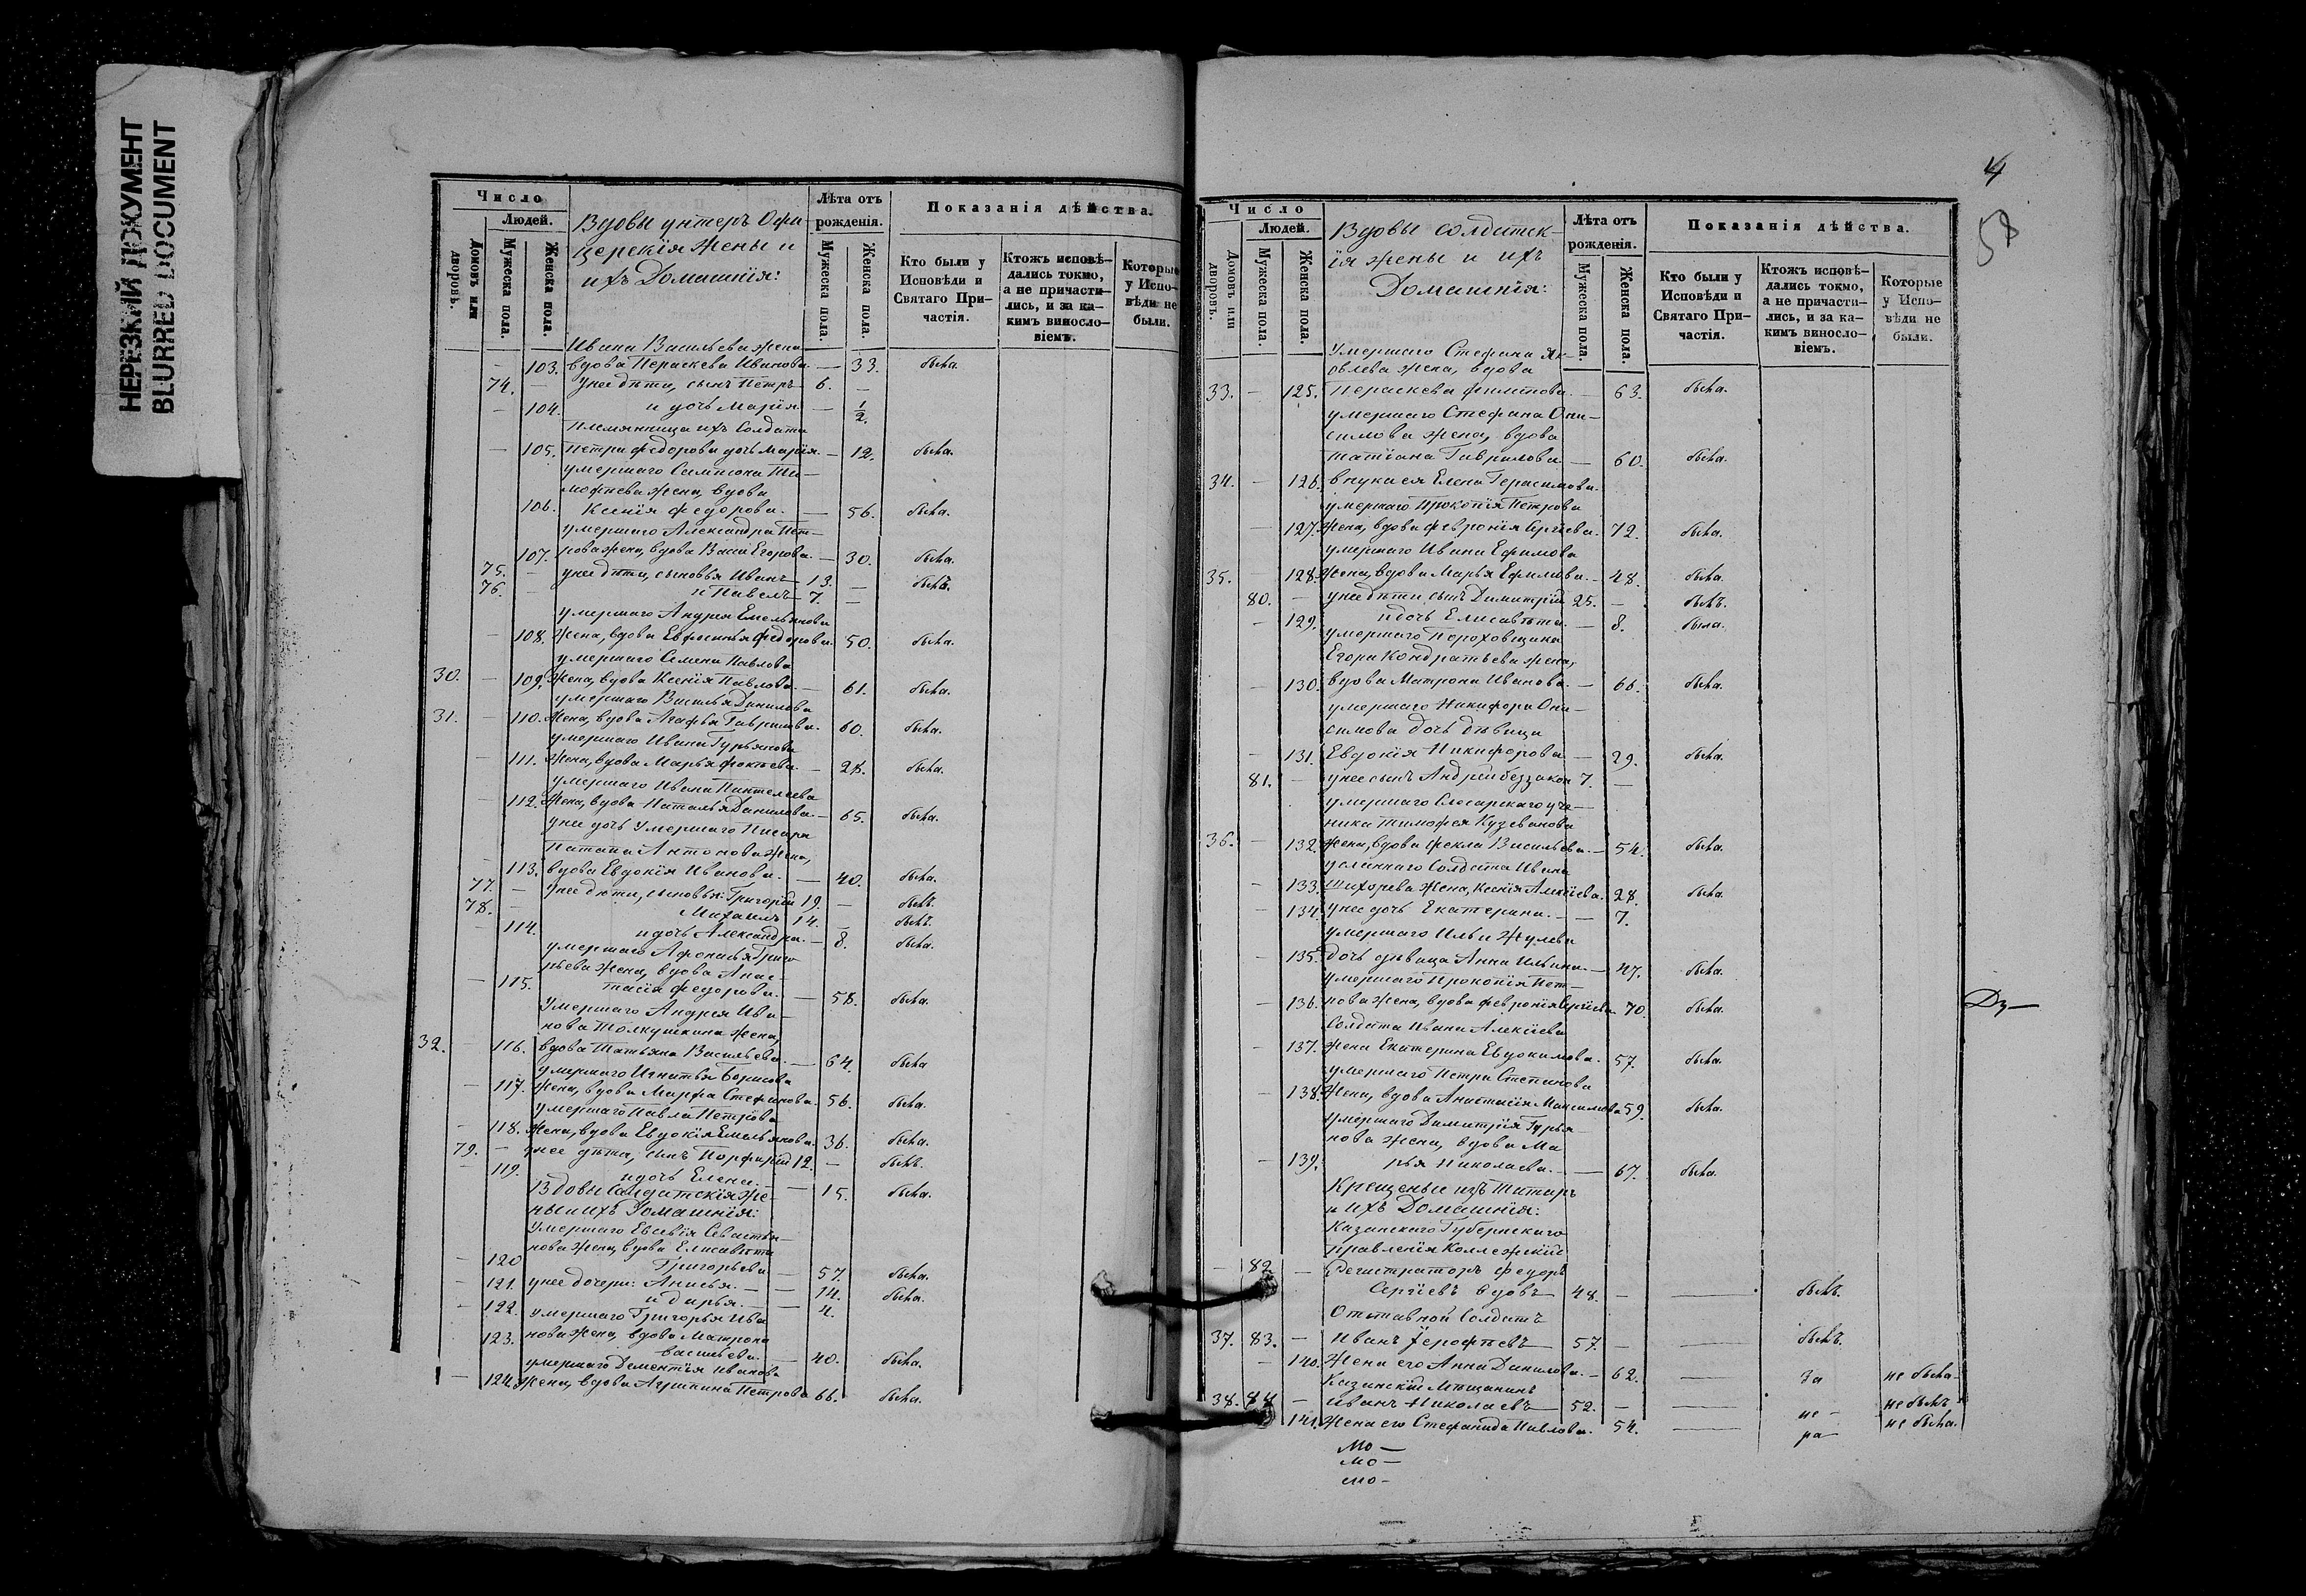 НЕРЕЗКИЙ ДОКУМЕНТ
BLURRED DOCUMENT
Число
Людей.
Домовъ или дворовъ.
Мужеска пола.
Женска пола.
Вдовы унтеръ Офи
церскія жены и
ихъ Домашнія:
Лѣта отъ рожденія.
Мужеска пола.
Женска пола.
Показанія дѣйства.
Кто были у Исповѣди и Святаго Причастія.
Ктожъ исповѣдались токмо, а не причастились, и за какимъ винословіемъ.
Которые у Исповѣди не были.
Ивана Васильева жена
— 103. вдова Параскева Иванова — 33. была.
74. — у нее дѣти, сынъ Петръ 6. —
— 104. и дочь Марія — 1/2.
племянница ихъ Солдата
— 105. Петра Федорова дочь Марія — 12. была.
умершаго Сампсона Ти-
мофѣева жена, вдова
106. Ксенія Федорова. — 56. была.
умершаго Александра Пет-
107. рова жена, вдова Егорова — 30. была.
75. — у нее дѣти, сыновья Иванъ 13. — былъ.
76. — и Павелъ 7. —
умершаго Андрея Емельянова
— 108. жена, вдова Евфросинья Федорова. 50. была.
умершаго Семена Павлова
30. — 109. жена, вдова Ксенія Павлова — 61. была.
умершаго Василья Данилова
31. — 110. жена, вдова Агафья Гаврилова. 60. была.
умершаго Ивана Гурьянова
— 111. жена, вдова Марья — 28. была.
умершаго Ивана Пантелеева
— 112. жена, вдова Наталья Данилова — 65. была.
у нее дочь умершаго Писаря
Антонова жена,
— 113. вдова Евдокія Иванова. — 40. была.
77. — у нее дѣти, сыновья: Григорій 19. — былъ.
78. — Михаилъ 14. — былъ.
— 114. и дочь Александра. — 8. была.
умершаго Афонасья Григо
рьева жена, вдова Анас-
— 115. тасія Федорова. — 58. была.
Умершаго Андрея Ива-
нова Толкушкина жена,
32. — 116. вдова Татьяна Васильева — 64. была
умершаго Игнатья Борисова
— 117. жена, вдова Марфа Стефанова. 56. была.
умершаго Павла Петрова
— 118. жена, вдова Евдокія Емельянова. 36. была.
79. — у нее дѣти, сынъ Порфирій 12. — былъ.
— 119. и дочь Елена. — 15. была.
Вдовы Солдатскія же-
ны и ихъ Домашнія:
Умершаго Евсевія Севастья-
нова жена, вдова Елисавета
— 120 Григорьева — 57. была.
— 121. у нее дочери: Анисья. — 14. была.
— 122. и Дарья. — 4.
умершаго Григорья Ива
123. нова жена, вдова Матрона
Васильева. 40. была.
умершаго Дементія Иванова
— 124. жена, вдова Агрипина Петрова 66. была.
4
58
Число
Людей.
Домовъ или дворовъ.
Мужеска пола.
Женска пола.
Вдовы Солдатск-
ія жены и ихъ
Домашнія:
Лѣта отъ рожденія.
Мужеска пола.
Женска пола.
Показанія дѣйства.
Кто были у Исповѣди и Святаго Причастія.
Ктожъ исповѣдались токмо, а не причастились, и за какимъ винословіемъ.
Которые у Исповѣди не были.
Умершаго Стефана Як-
овлева жена, вдова
33. — 125. Параскева Филипова. — 63. была.
умершаго Стефана Они-
симова жена, вдова
Татіана Гаврилова — 60. была.
34. — 126. внука ея Елена Герасимова.
умершаго Прокопія Петрова
— 127. жена, вдова Февронія Сергіева. 72. была.
умершаго Ивана Ефимова
35. — 128. жена, вдова Марья Ефимова. — 48. была.
80. — у нее дѣти, сынъ Димитрій 25. — былъ.
— 129. и дочь Елисавета. — 8. была.
умершаго Пороховщика
Егора Кондратьева жена,
— 130. вдова Матрона Иванова. — 66. была.
умершаго Никифора Они-
симова дочь дѣвица
— 131. Евдокія Никифорова — 29. была.
81. — у нее сынъ Андрей беззакон 7. —
умершаго Слесарскаго уче-
ника Тимофея
36. — 132. жена, вдова Фекла Васильева. — 54. была.
Солдата Ивана
— 133. жена, Ксенія Алексіева. 28. была.
— 134. у нее дочь Екатерина. — 7.
умершаго Ильи
— 135. дочь дѣвица Анна Ильина. — 47. была.
умершаго Прокопія Пет-
— 136. рова жена, вдова Февронія Сергіева 70. была.
Солдата Ивана Алексіева
— 137. жена Екатерина Евдокимова. 57. была.
умершаго Петра Степанова
— 138. жена, вдова Анастасія Максимова 59. была.
умершаго Димитрія Гурья-
нова жена, вдова Ма
— 139. рья Николаева. — 67. была.
Крещеные изъ Татаръ
и ихъ Домашнія:
Казанскаго Губернскаго
правленія Коллежскій
— 82 — Регистраторъ Федоръ
Сергіевъ вдовъ 48. — — былъ.
Отставной Солдатъ
37. 83. — Иванъ Ерофѣевъ 57. — — былъ.
— 140. жена его Анна Данилова. — 62. — за не была
Казанскій Мѣщанинъ
38. 84 — Иванъ Николаевъ 52. — — не- не былъ
141. жена его Стефанида Павлова. 54. — ра- не была.
Мо —
мо —
мо —